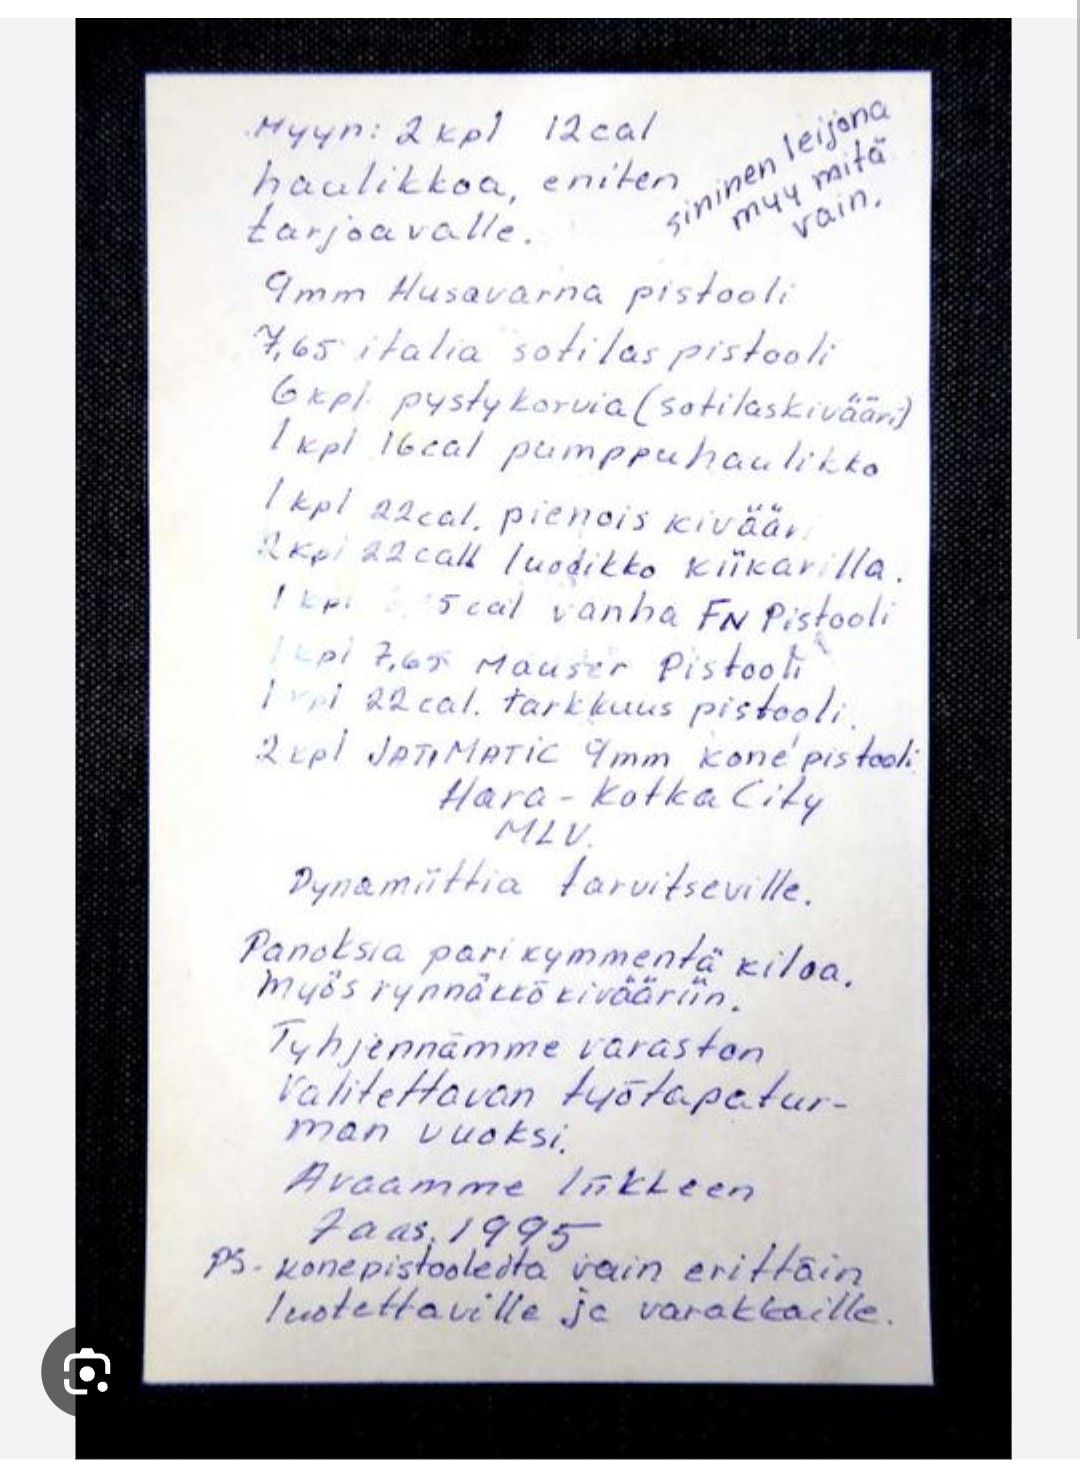 Myyn: 2 kpl 12cal
haulikkoa, eniten
tarjoavalle.
sininen leijona
myy mitä
vain.
9mm Husavarna pistooli
7,65 italia sotilas pistooli
6 kpl pystykorvia (sotilaskivääri)
1 kpl 16cal pumppuhaulikko
1 kpl 22cal. pienois kivääri
2 kpl 22call luodikko kiikarilla.
1 kpl 5 cal vanha FN Pistooli
1 kpl 7,65 Mauser Pistooli
1 kpl 22cal. tarkkuus pistooli.
2 kpl JATIMATIC 9mm kone pistooli
Hara-Kotka City
MLV.
Dynamiittia tarvitseville.
Panoksia pari kymmentä kiloa.
Myös rynnäkkö kivääriin.
Tyhjennämme varaston
Valitettavan työtapatur-
man vuoksi.
Avaamme liikkeen
aas. 1995
PS. konepistooleita vain erittäin
luotettaville ja varakkaille.